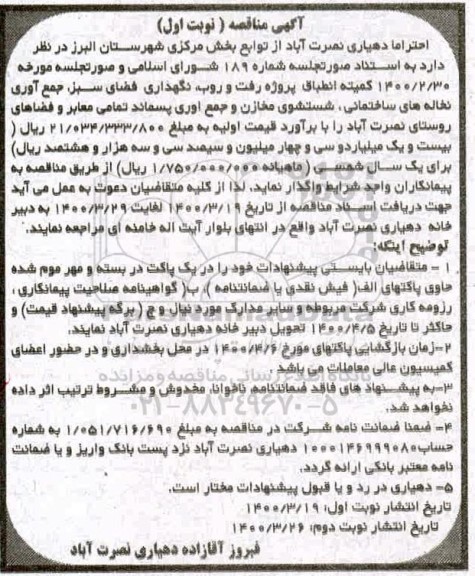 آگهی مناقصه ( نوبت اول)
احتراما دهیاری نصرت آباد از توابع بخش مرکزی شهرستان البرز در نظر
دارد به استناد صورتجلسه شماره ۱۸۹ شورای اسلامی و صورتجلسه مورخه
۱۴۰۰/۲/۳۰ کمیته انطباق پروژه رفت و روب، نگهداری فضای سبز، جمع آوری
نخاله های ساختمانی ، شستشوی مخازن و جمع اوری پسماند تمامی معابر و فضاهای
روستای نصرت آباد را با برآورد قیمت اولیه به مبلغ ۲۱/۰۳۴/۳۳۳/۸۰۰ ریال (
بیست و یک میلیاردو سی و چهار میلیون و سیصد سی و سه هزار و هشتصد ریال)
برای یک سال شمسی ( ماهیانه ۱/۷۵۰/۰۰۰/۰۰۰ ریال) از طریق مناقصه به
پیمانکاران واجد شرایط واگذار نماید، لذا از کلیه متقاضیان دعوت به عمل می آید
جهت دریافت اسناد مناقصه از تاریخ ۱۴۰۰/۳/۱۹ لغایت ۱۴۰۰/۳/۲۹ به دبیر
خانه دهیاری نصرت آباد واقع در انتهای بلوار آیت اله خامنه ای مراجعه نمایند.
توضیح اینکه:
۱ – متقاضیان بایستی پیشنهادات خود را در یک پاکت در بسته و مهر موم شده
حاوی پاکتهای الف( فیش نقدی یا ضمانتنامه ) ، ب( گواهینامه صلاحیت پیمانکاری ،
رزومه کاری شرکت مربوطه و سایر مدارک مورد نیاز، و ج ( برگه پیشنهاد قیمت) و
حاکثر تا تاریخ ۱۴۰۰/۴/۵ تحویل دبیر خانه دهیاری نصرت آباد نمایند.
۲–زمان بازگشایی پاکتهای مورخ ۱۴۰۰/۴/۶ در محل بخشداری و در حضور اعضای
کمیسیون عالی معاملات می باشد
۳–به پیشنهاد های فاقد ضمانتنامه، ناخوانا، مخدوش و مشروط ترتیب اثر داده
نخواهد شد.
۴– ضمنا ضمانت نامه شرکت در مناقصه به مبلغ ۱/۰۵۱/۷۱۶/۶۹۰ به شماره
حساب۱۰۰۰۱۴۶۹۹۹۰۸۰ دهیاری نصرت آباد نزد پست بانک واریز و یا ضمانت
نامه معتبر بانکی ارائه گردد.
۵– دهیاری در رد و یا قبول پیشنهادات مختار است.
تاریخ انتشار نوبت اول: ۱۴۰۰/۳/۱۹
تاریخ انتشار نوبت دوم: ۱۴۰۰/۳/۲۶
فیروز آقازاده دهیاری نصرت آباد
۰۲۱-۸۸۳۴۹۶۷۰-۵